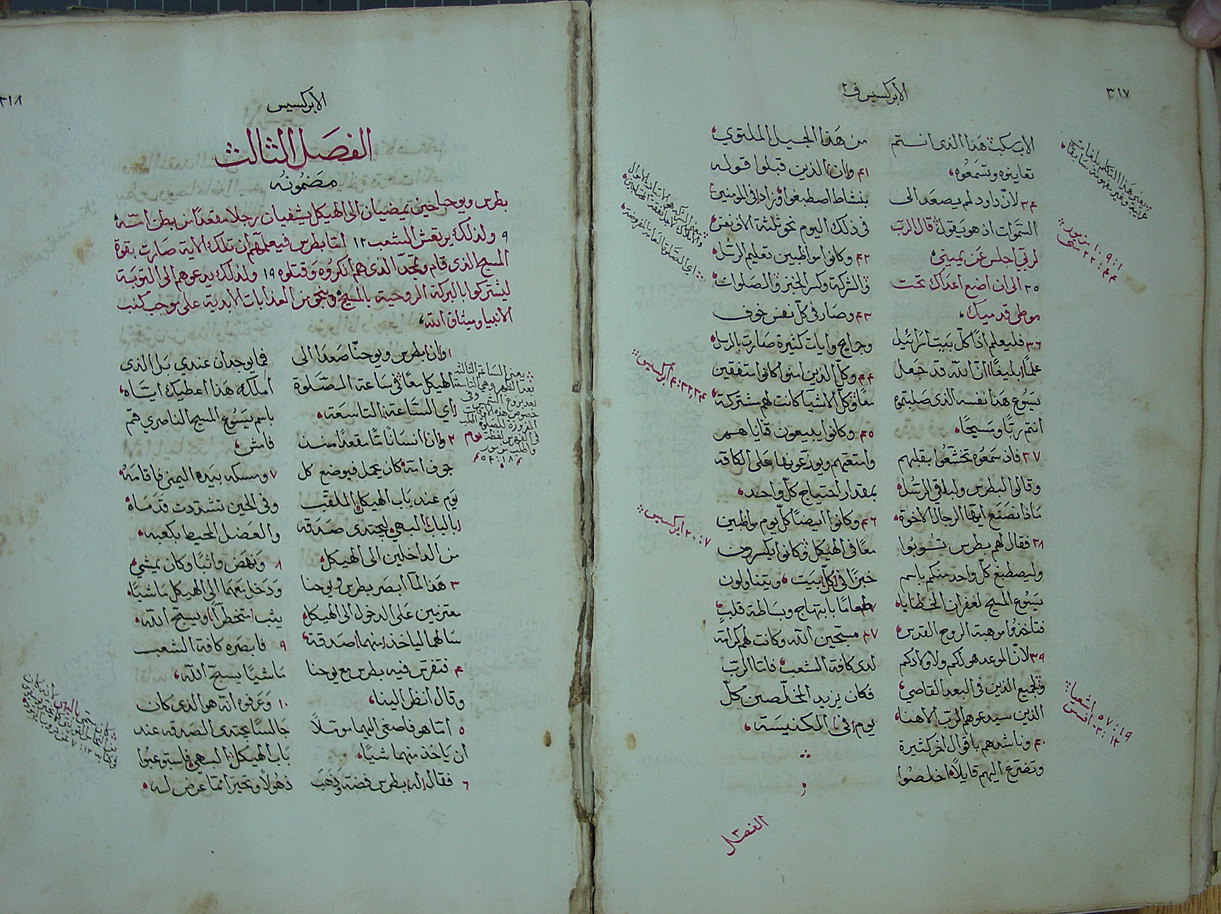 ٣١٧
الأبركسيس ف٢
الانسكبت هذا الذي انتم
تعاينوه وتسمعوه
٣٤ لان داود لم يصعد الى
السموات اذ هو يقول قال الرب
لربي اجلس عن يميني
٣٥ الى ان اضع اعداك تحت
موطى قدميك
٣٦ فليعلم اذا كل بيت اسرائيل
علما بليغا ان الله قد جعل
يسوع هذا نفسه الذي صلبتموه
انتم ربا ومسيحا
٣٧ فلما سمعوه تخشعوا بقلبهم
وقالوا لبطرس ولباقي الرسل
ماذا نصنع ايها الرجال الاخوة
٣٨ فقال لهم بطرس توبوا
وليصطبغ كل واحد منكم باسم
يسوع المسيح لغفران الخطايا
فتاخذوا موهبة الروح القدس
٣٩ لان الموعد هو لكم ولاولادكم
ولجميع الذين في البعد القاصي
الذين سيدعوهم الرب الاهنا
٤٠ وناشدهم باقوال اخر كثيرة
وتضرع اليهم قايلا اخلصوا
من هذا الجيل الملتوي
٤١ وان الذين قبلوا قوله
بنشاط اصطبغوا وزاد في المومنين
في ذلك اليوم نحو ثلثة الاف نفس
٤٢ وكانوا مواظبين تعليم الرسل
والشركة وكسر الخبز والصلوات
٤٣ وصار في كل نفس خوف
وجرايح وايات كثيرة صارت بالرسل
٤٤ وكل الذين امنوا كانوا متفقين
معا وكل الاشيا كانت لهم مشتركة
٤٥ وكانوا يبيعون قناياهم
وامتعتهم ويوزعونها على الكافة
بمقدار احتياج كل واحد
٤٦ وكانوا ايضا كل يوم مواظبين
معا في الهيكل وكانوا يكسرون
خبزا في كل بيت ويتناولون
طعاما بابتهاج وبساطة قلب
٤٧ مسبحين الله وكانت لهم كرامة
لدى كافة الشعب فاما الرب
فكان يزيد المخلصين كل
يوم في الكنيسة
١٠٩:١ زبور
٢٠:٧ ابركسيس
٥٧:١٩ اشعيا
الفصل
٣
٣١٨
الأبركسيس
الفصل الثالث
مضمونه
بطرس ويوحنا حين يمضيان الى الهيكل يشفيان رجلا مقعدا من بطن امه
٩ ولذلك يرتعش الشعب ١٢ اما بطرس فيعلمهم ان تلك الاية صارت بقوة
المسيح الذي قام وتمجد الذي هم انكروه وقتلوه ١٩ ولذلك يدعوهم الى التوبة
ليشتركوا بالبركة الروحية بالمسيح وينجوا من العذابات الابدية على موجب كتب
الانبيا وميثاق الله
١ وان بطرس ويوحنا صعدا الى
الهيكل معا في ساعة الصلوة
اي الساعة التاسعة
٢ وان انسانا مقعدا من
جوف امه كان يحمل فيوضع كل
يوم عند باب الهيكل الملقب
بالباب البهي ليجتدي صدقة
من الداخلين الى الهيكل
٣ هذا لما ابصر بطرس ويوحنا
معتزمين على الدخول الى الهيكل
سالهما لياخذ منهما صدقة
٤ فتفرس فيه بطرس مع يوحنا
وقال انظر الينا
٥ اما هو فاصغى اليهما موملا
ان ياخذ منهما شيا
٦ فقال له بطرس فضة وذهب
فما يوجدان عندي بل الذي
املكه هذا اعطيك اياه
باسم يسوع المسيح الناصري قم
فامش
٧ ومسكه بيده اليمنى فاقامه
وفي الحين تشددت قدماه
والعضل المحيط بكعبه
٨ ونهض واثبا وكان يمشي
ودخل معهما الى الهيكل ماشيا
يثب متخطرا ويسبح الله
٩ فابصره كافة الشعب
ماشيا يسبح الله
١٠ وعرفوه انه هو الذي كان
جالسا يجتدي الصدقة عند
باب الهيكل البهي فاستوعبوا
ذهولا وتحيرا مما عرض له